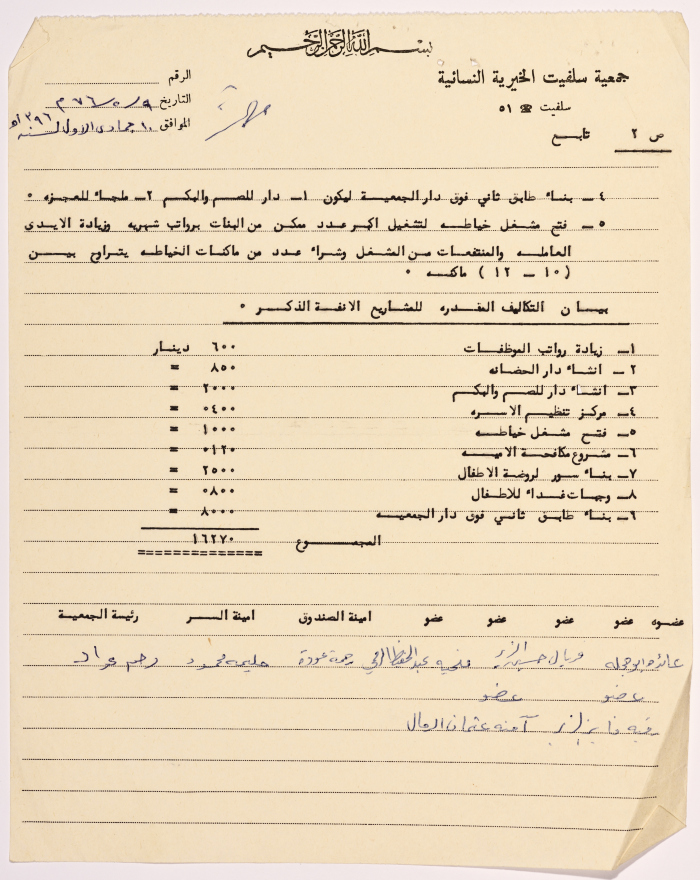 بسم الله الرحمن الرحيم
جمعية سلفيت الخيرية النسائية
سلفيت ☎ ٥١
الرقم
التاريخ ٩ / ٥ / ٧٦ م
الموافق ١٠ جمادى الاول لسنه ١٣٩٦ هـ
ص ٢ تابع
٤ ــ بناء طابق ثاني فوق دار الجمعية ليكون ١ــ دار للصم والبكم ٢ــ ملجاء للعجزه ٠
٥ ــ فتح مشغل خياطه لتشغيل اكبر عدد ممكن من البنات برواتب شهريه وزيادة الايدى
العامله والمنتفعات من المشغل وشراء عدد من ماكنات الخياطه يتراوح بين
( ١٠ ــ ١٢ ) ماكنه ٠
بيان التكاليف المقدره للمشاريع الانفة الذكر ٠
١ــ زيادة رواتب الموظفات ٦٠٠ دينار
٢ ــ انشاء دار الحضانه ٨٥٠ =
٣ــ انشاء دار للصم والبكم ٢٠٠٠ =
٤ــ مركز تنظيم الاسره ٠٤٠٠ =
٥ــ فتح مشغل خياطه ١٠٠٠ =
٦ــ مشروع مكافحة الاميه ٠١٢٠ =
٧ــ بناء سور لروضة الاطفال ٢٥٠٠ =
٨ــ وجبات غداء للاطفال ٠٨٠٠ =
٦ــ بناء طابق ثاني فوق دار الجمعيه ٨٠٠٠ =
المجموع ١٦٢٧٠
عضوه عضو عضو عضو عضو امينة الصندوق امينة السر رئيسة الجمعية
عائده ابو حجله فريال حسين الزير فتحيه عبد الحفيظ رحمة عودة حليمه محمود رحم عواد
عضو عضو
رقيه فايز الزير آمنه عثمان